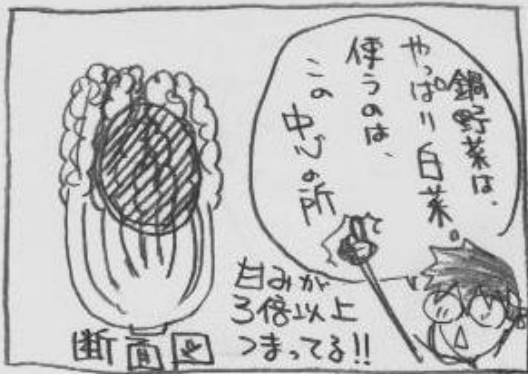 鍋野菜は、
やっぱり白菜。
使うのは、
この中心の所
甘みが
3倍以上
つまってる!!
断面図